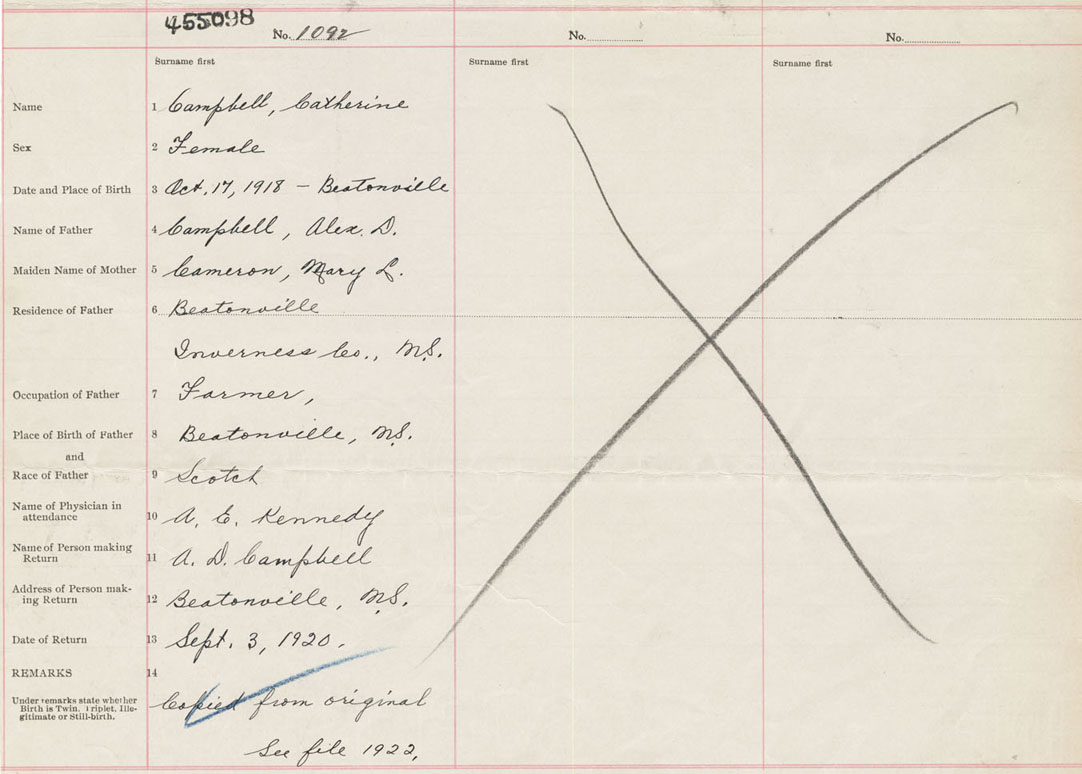 455098
No. 1092 No. No.
Surname first Surname first Surname first
Name 1 Campbell, Catherine
Sex 2 Female
Date and Place of Birth 3 Oct. 17, 1918 - Beatonville
Name of Father 4 Campbell, Alex. D.
Maiden Name of Mother 5 Cameron, Mary L.
Residence of Father 6 Beatonville
Inverness Co., N.S.
Occupation of Father 7 Farmer,
Place of Birth of Father 8 Beatonville, N.S.
and
Race of Father 9 Scotch
Name of Physician in
attendance 10 A. E. Kennedy
Name of Person making
Return 11 A. D. Campbell
Address of Person mak-
ing Return 12 Beatonville, N.S.
Date of Return 13 Sept. 3, 1920.
REMARKS 14
Under remarks state whether
Birth is Twin. Triplet, Ille-
gitimate or Still-birth.
Copied from original
See file 1922,